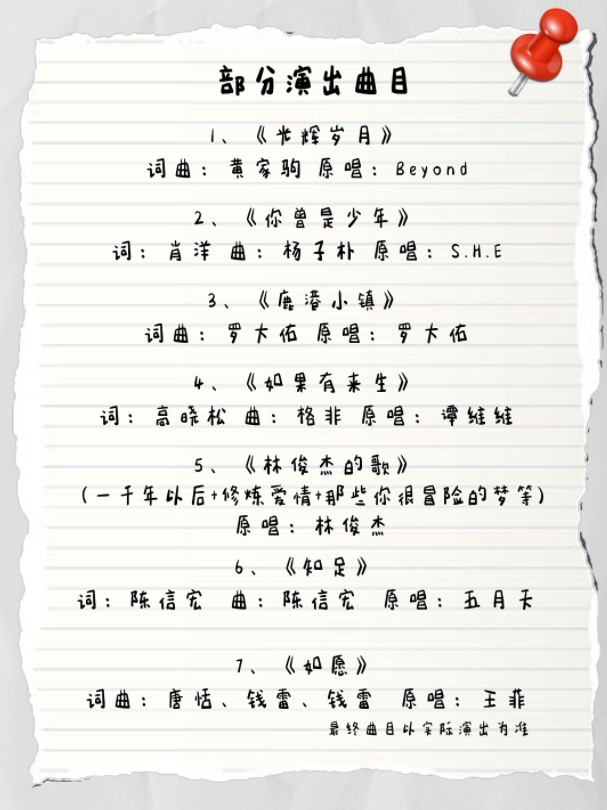 部分演出曲目
1、《光辉岁月》
词曲：黄家驹 原唱：Beyond
2、《你曾是少年》
词：肖洋 曲：杨子朴 原唱：S.H.E
3、《鹿港小镇》
词曲：罗大佑 原唱：罗大佑
4、《如果有来生》
词：高晓松 曲：格非 原唱：谭维维
5、《林俊杰的歌》
（一千年以后+修炼爱情+那些你很冒险的梦等）
原唱：林俊杰
6、《知足》
词：陈信宏 曲：陈信宏 原唱：五月天
7、《如愿》
词曲：唐恬、钱雷、钱雷 原唱：王菲
最终曲目以实际演出为准